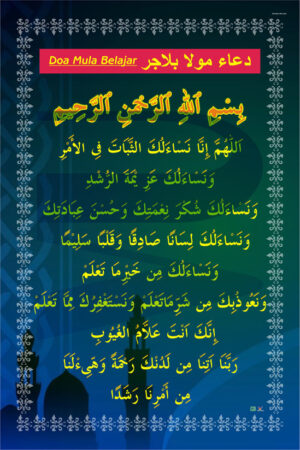 دعاء مولا بلاجر Doa Mula Belajar
بِسْمِ ٱللَّهِ ٱلرَّحْمَٰنِ ٱلرَّحِيمِ
اَللّٰهُمَّ إِنَّا نَسْاَلُكَ الثَّبَاتَ فِى الأَمْرِ
وَنَسْاَلُكَ عَزِيْمَةَ الرُّشْدِ
وَنَسْاَلُكَ شُكْرَ نِعْمَتِكَ وَحُسْنَ عِبَادَتِكَ
وَنَسْاَلُكَ لِسَانًا صَادِقًا وَقَلْبًا سَلِيْمًا
وَنَسْاَلُكَ مِن خَيْرِمَا تَعْلَمْ
وَنَعُوْذُبِكَ مِن شَرِّمَاتَعْلَمْ وَنَسْتَغْفِرُكَ مِمَّا تَعْلَمْ
إِنَّكَ اَنْتَ عَلَّامُ الْغُيُوْبِ
رَبَّنَا اَتِنَا مِن لَدُنْكَ رَحْمَةً وَهَيِّءْلَنَا
مِن أَمْرِنَا رَشَدًا